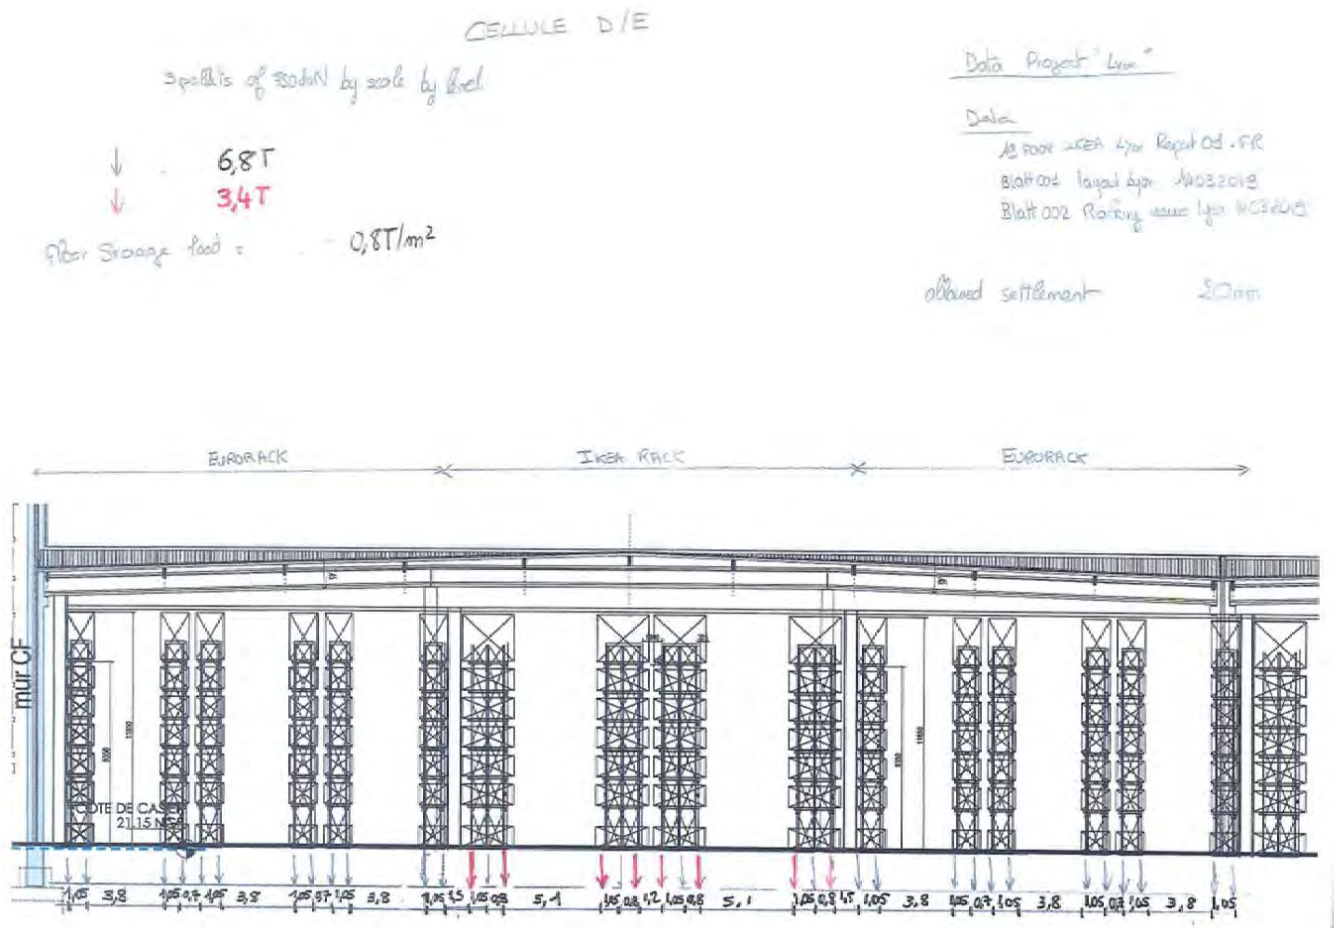 CELLULE D/E
3 pallets of 850daN by scale by level
↓ 6,8T
↓ 3,4T
Floor Storage load = 0,8T/m²
Data Project "Lyon"
Data
IKEA Lyon Report 01.FR
Blatt 001 layout Lyon 14032019
Blatt 002 Racking Lyon
allowed settlement 20mm
EURORACK IKEA RACK EURORACK
mur CF
COTE DE CASIER
21.15 NGF
1,05 3,8 1,05 0,7 1,05 3,8 1,05 0,7 1,05 3,8 1,05 1,5 1,05 0,8 5,1 1,05 0,8 1,2 1,05 0,8 5,1 1,05 0,8 1,5 1,05 3,8 1,05 0,7 1,05 3,8 1,05 0,7 1,05 3,8 1,05